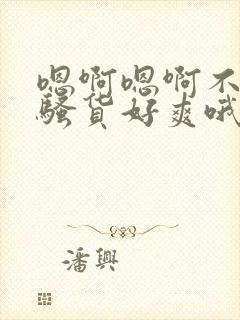 嗯啊嗯啊不
骚货好爽哦
潘興